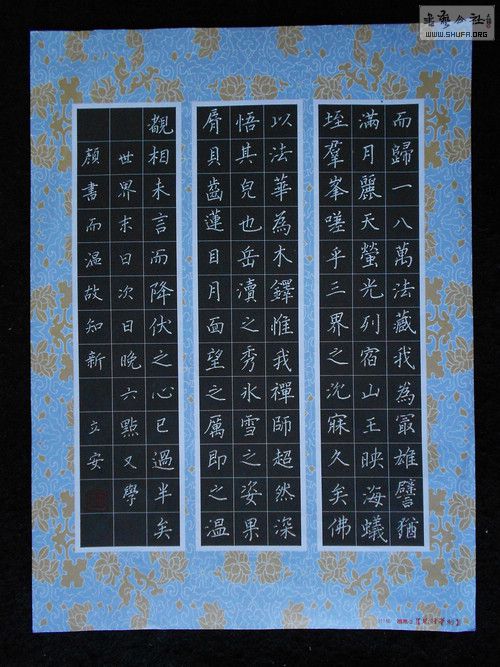 書藝公社
WWW.SHUFA.ORG
而歸一八萬法藏我為冣雄譬猶
滿月麗天螢光列宿山王映海蟻
垤羣峯嗟乎三界之沉寐久矣佛
以法華為木鐸惟我禪師超然深
悟其皃也岳瀆之秀氷雪之姿果
脣貝齒蓮目月面望之厲即之温
覩相未言而降伏之心已過半矣
世界末日次日晚六點又學
顏書而温故知新 立安